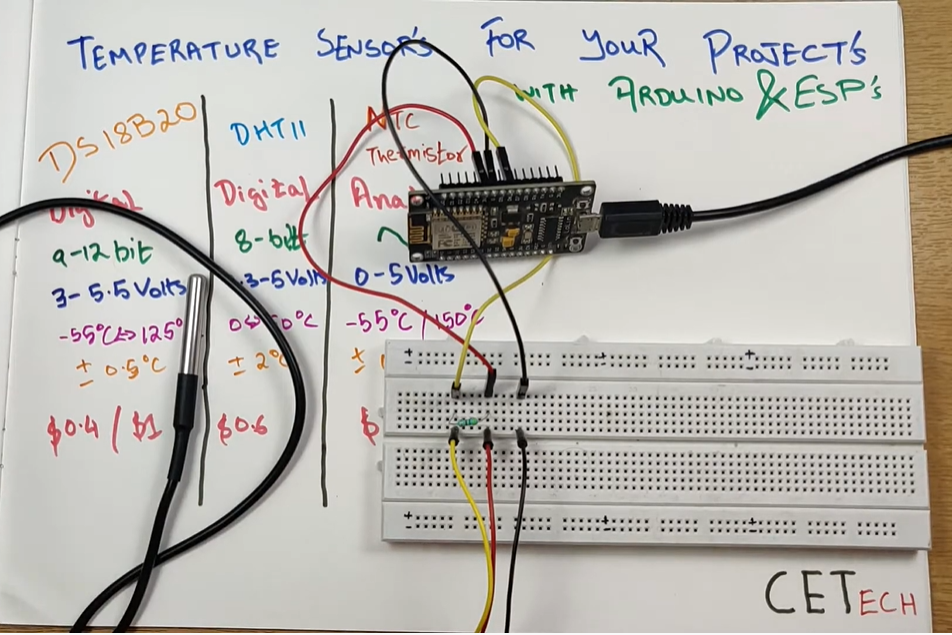 TEMPERATURE SENSOR'S FOR YOUR PROJECT'S
WITH ARDUINO & ESP's
DS18B20
Digital
9-12 bit
3-5.5 Volts
-55°C↔125°
± 0.5°C
$0.4 / $1
DHT11
Digital
8-bit
3-5Volts
± 2°C
$0.6
NTC
Thermistor
Ana
~
0-5 Volts
-55°C / 150°C
±
$
CETECH